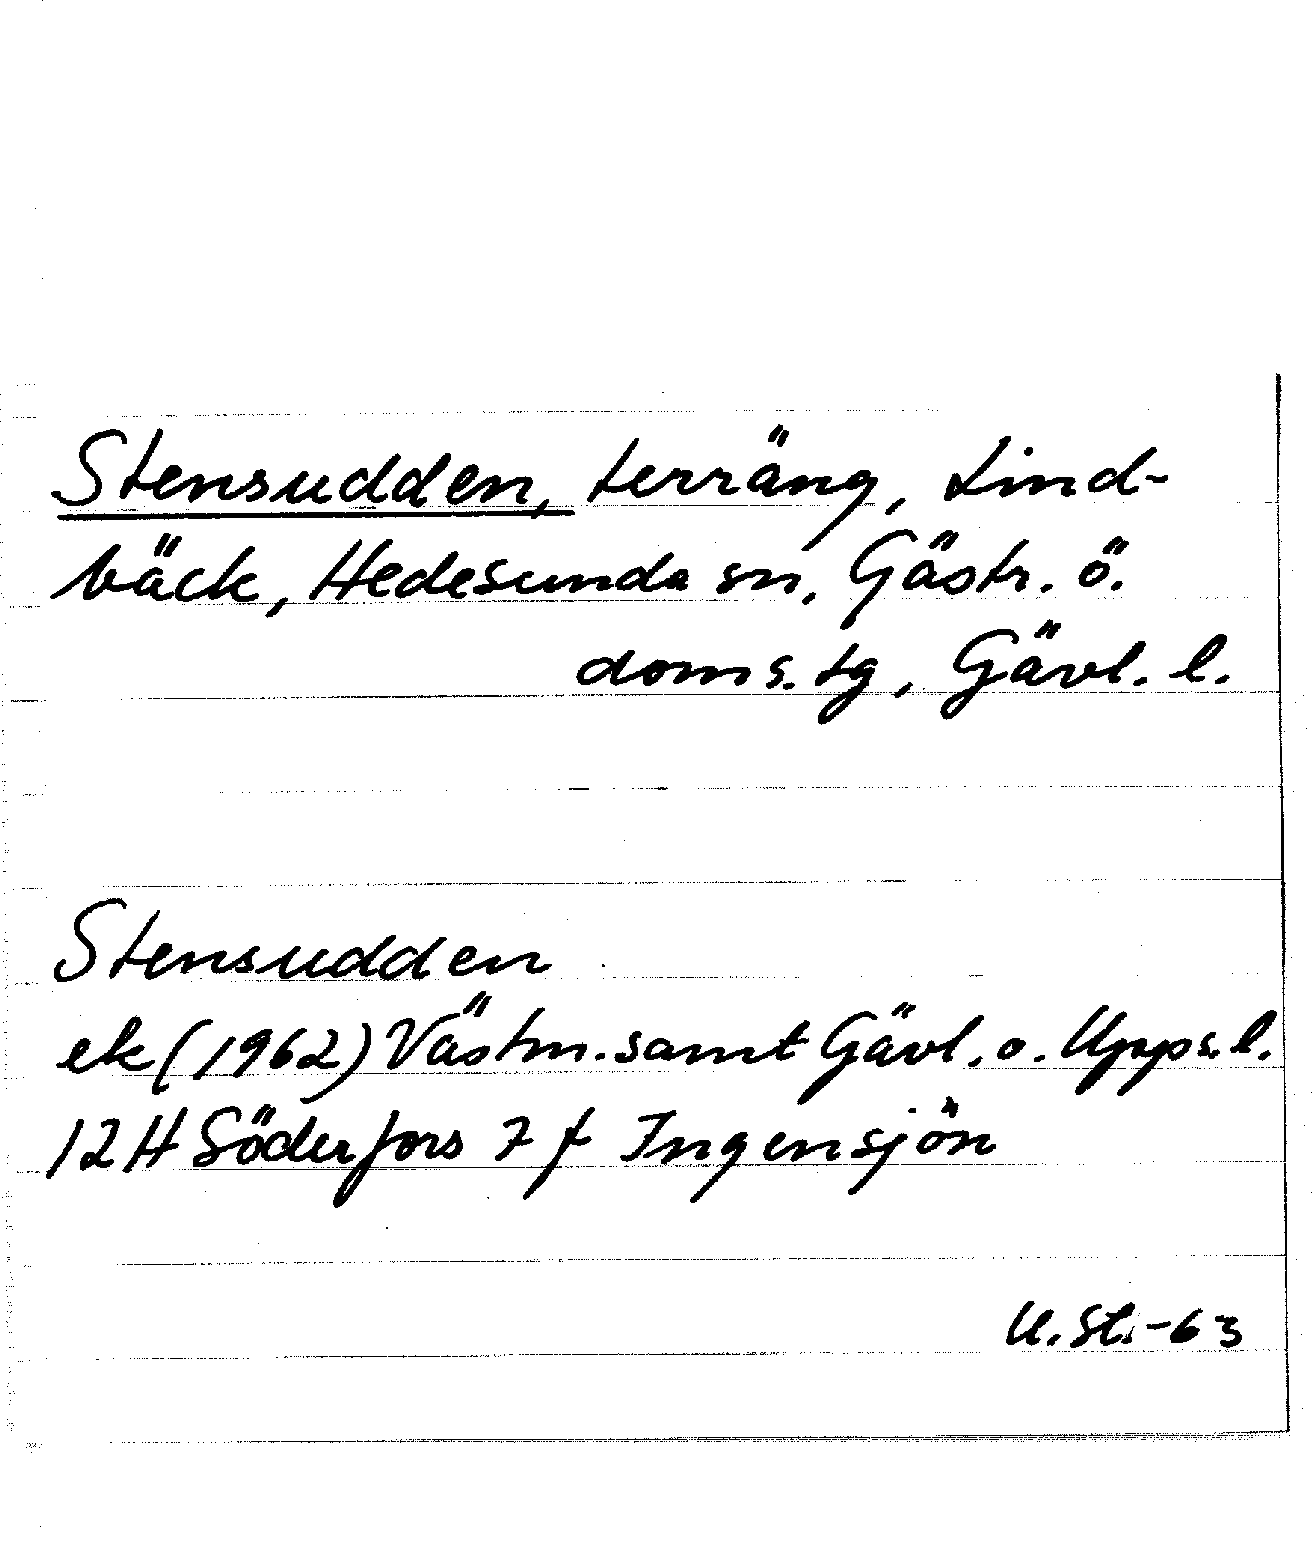 Stensudden, terräng, Lind-
bäck, Hedesunda sn, Gästr. ö.
doms.tg, Gävl. l.
Stensudden
ek (1962) Västm. samt Gävl. o. Upps. l.
12H Söderfors 7 f Ingensjön
U. St. -63